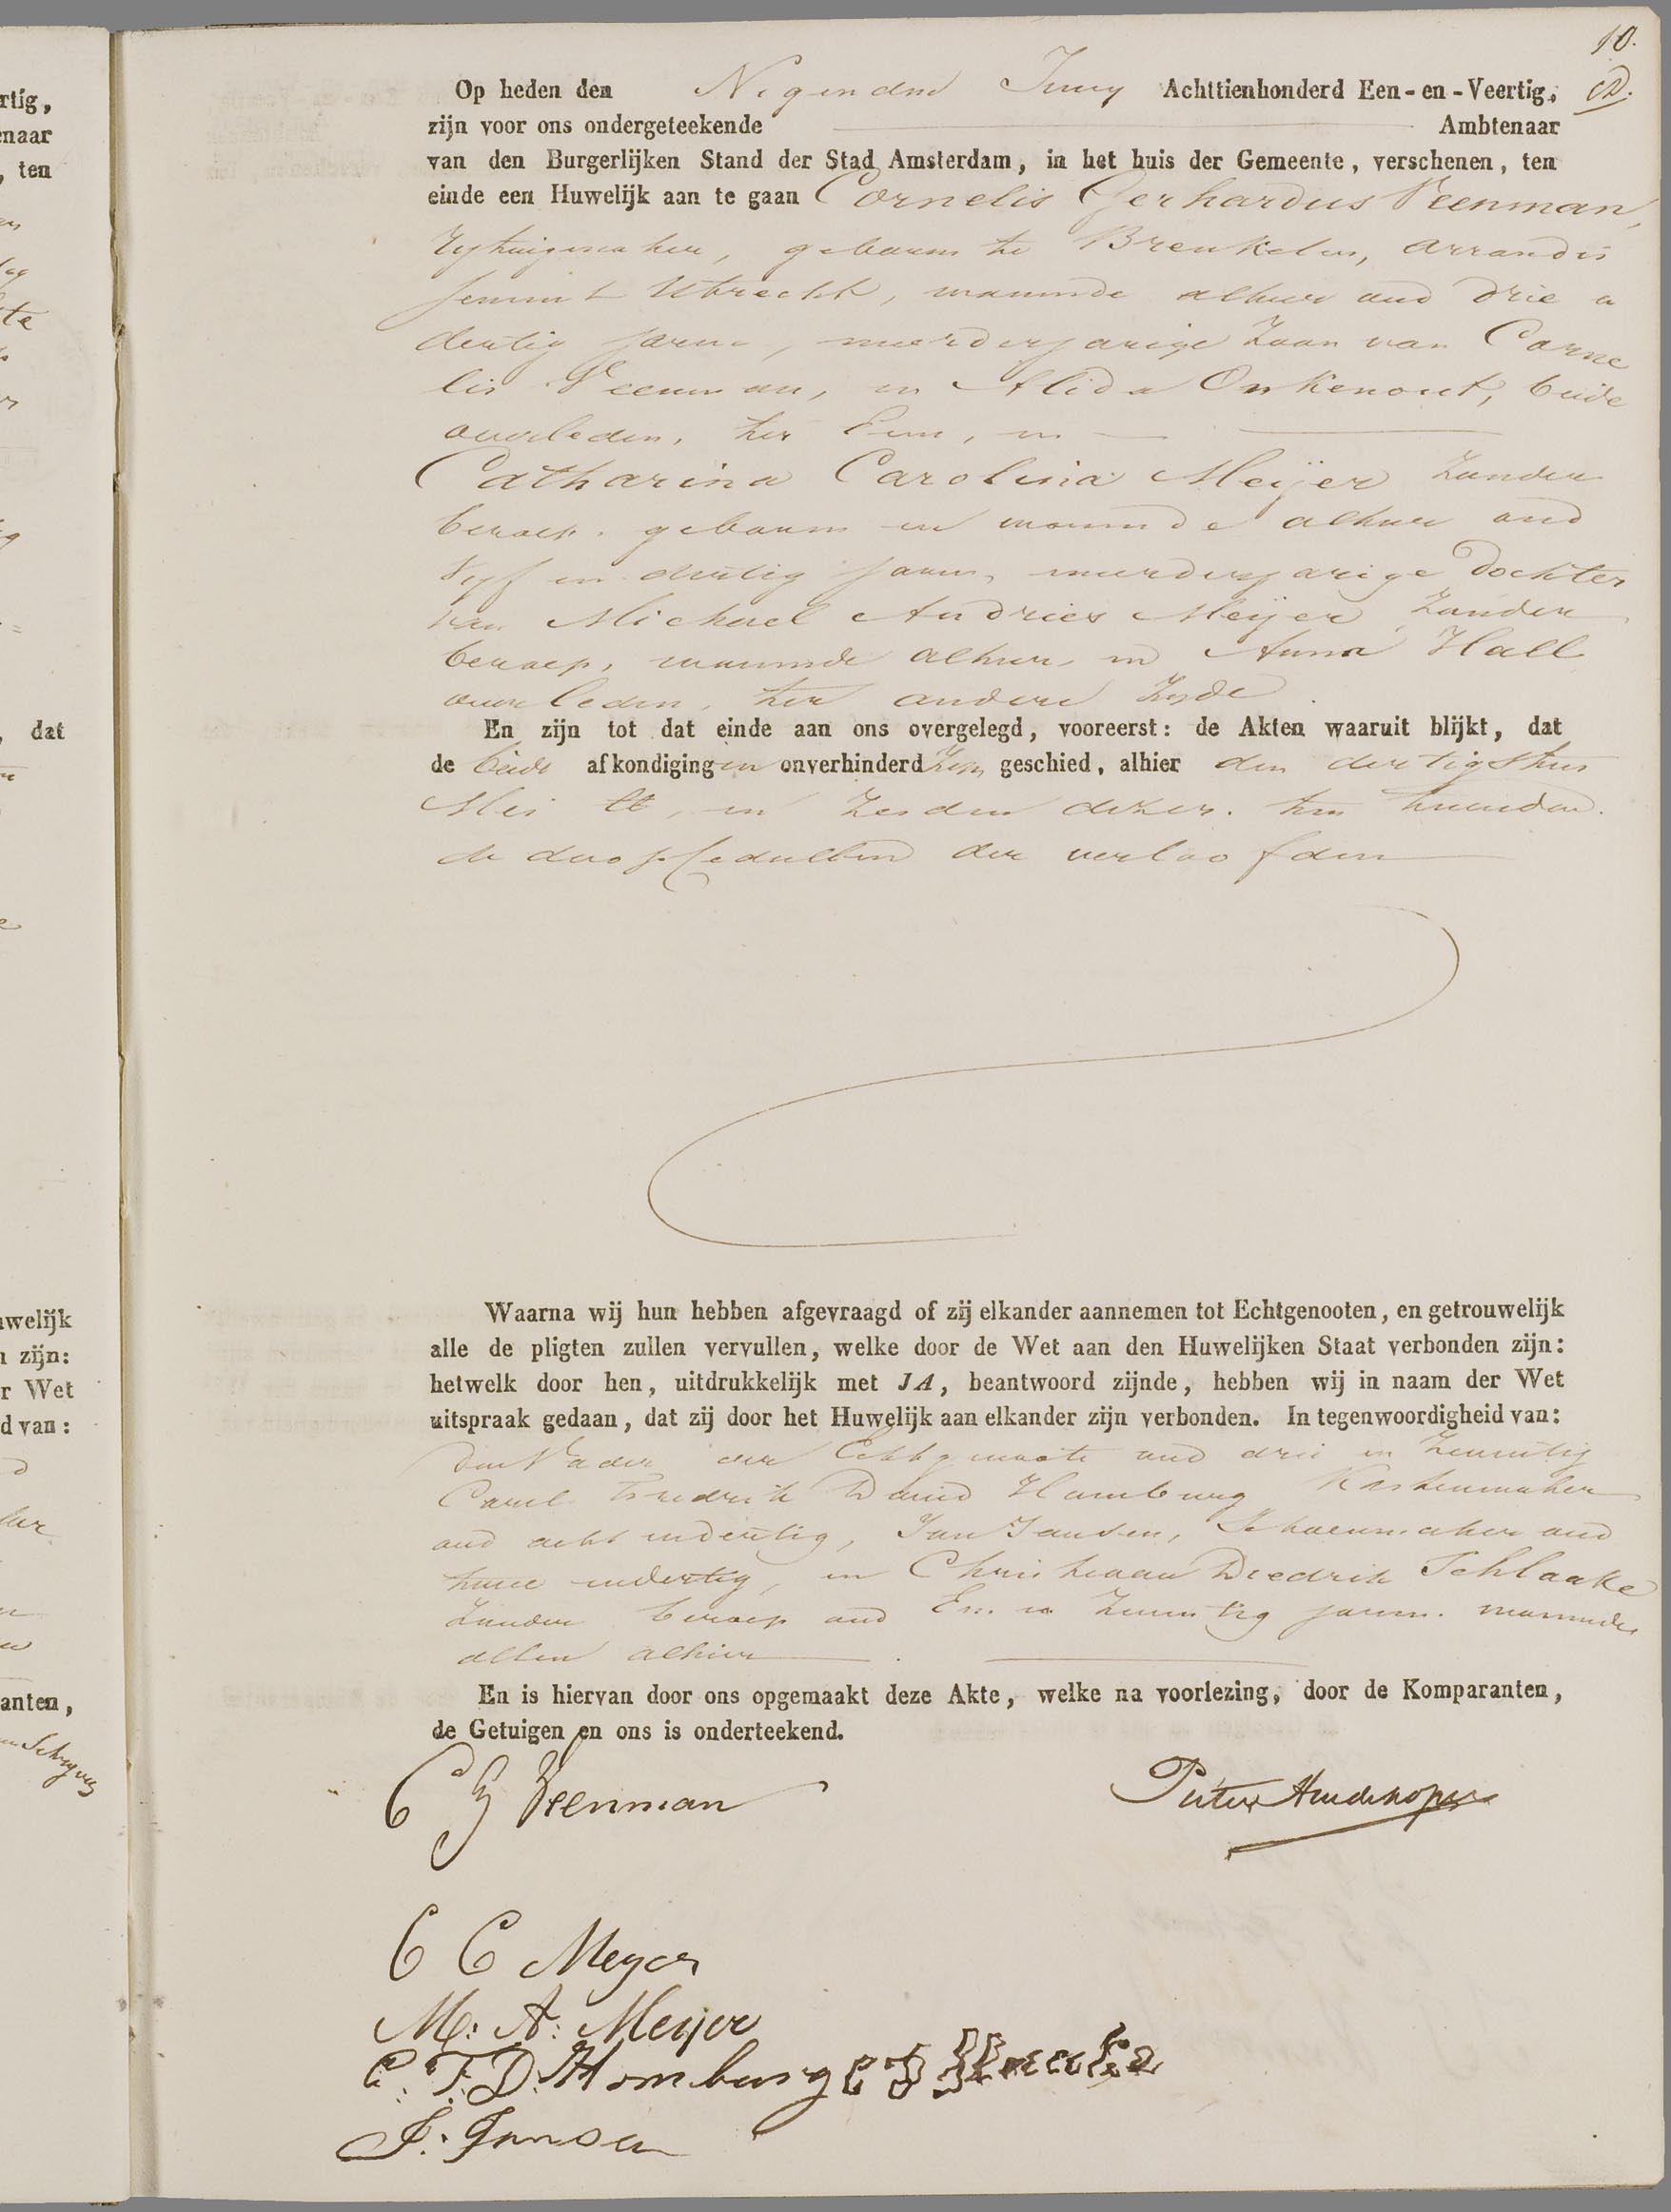 10.
Op heden den Negenden Juny Achttienhonderd Een-en-Veertig,
zijn voor ons ondergeteekende Ambtenaar
van den Burgerlijken Stand der Stad Amsterdam, in het huis der Gemeente, verschenen, ten
einde een Huwelijk aan te gaan Cornelis Gerhardus Veenman,
Rytuigmaker, geboren te Breukelen, arrondis
sement Utrecht, woonende alhier oud drie en
dertig jaren, meerderjarige Zoon van Corne
lis Veenman, en Alida Onkenout, beide
overleden, ter Eene, en
Catharina Carolina Meijer Zonder
beroep. geboren en woonende alhier oud
Vyf en dertig jaren, meerderjarige Dochter
van Michael Andries Meijer Zonder
beroep, woonende alhier, en Anna Hall
overleden, ter andere Zyde.
En zijn tot dat einde aan ons overgelegd, vooreerst: de Akten waaruit blijkt, dat
de beide afkondigingen onverhinderd zyn geschied, alhier den dertigsten
Mei ll, en Zesden dezer. ten tweeden.
de doop Cedullen der verloofden
Waarna wij hun hebben afgevraagd of zij elkander aannemen tot Echtgenooten, en getrouwelijk
alle de pligten zullen vervullen, welke door de Wet aan den Huwelijken Staat verbonden zijn:
hetwelk door hen, uitdrukkelijk met JA, beantwoord zijnde, hebben wij in naam der Wet
uitspraak gedaan, dat zij door het Huwelijk aan elkander zijn verbonden. In tegenwoordigheid van:
den Vader der Echtgenoote oud drie en Zeventig
Carel Fredrik David Homburg Kastenmaker
oud acht en dertig, Jan Jansen, Schoenmaker oud
twee en dertig, en Christiaan Diedrik Schlaake
Zonder beroep oud Een en Zeventig jaren. woonende
allen alhier
En is hiervan door ons opgemaakt deze Akte, welke na voorlezing, door de Komparanten,
de Getuigen en ons is onderteekend.
C G Veenman
Pieter Huidekoper
C C Meyer
M: A: Meijer
C: F: D: Homburg C D Schlaake
J: Jansen